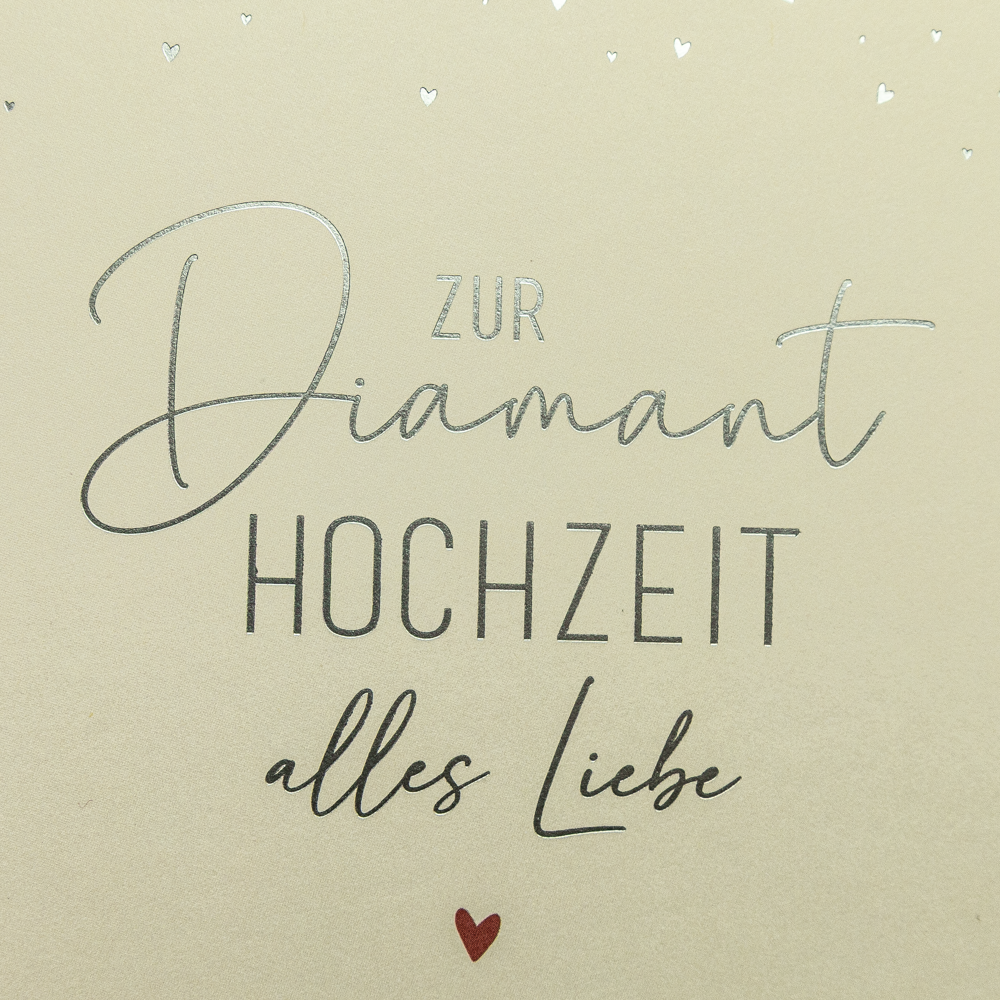 ZUR
Diamant
HOCHZEIT
alles Liebe